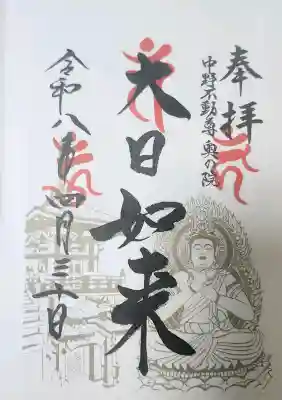 奉拝
中野不動尊奥の院
大日如来
令和八年四月三十日